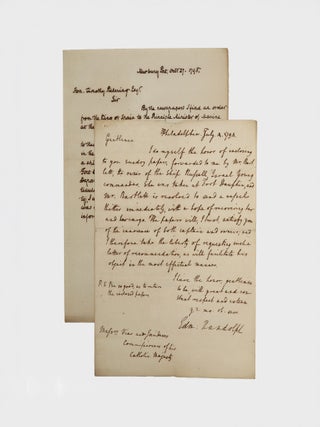 Newbury Port Oct 27. 1795.
Hon. Timothy Pickering Esqr.
Sir
By the newspapers I find an order
from the King of Spain to the Principle Minister of
Philadelphia July 2. 1794
Gentlemen
I do myself the honor of
to you sundry papers, forwarded to me by Mr. Bart
lett, the owner of the ship Russell, Israel Young
commander. She was taken at Port Dauphin, and
Mr. Bartlett is resolved to send a
thither immediately, with a hope of recovering her
and her cargo. The papers will, I trust, satisfy you
of the innocence of both captain and owner; and
therefore take the liberty of requesting such a
letter of recommendation, as will facilitate his
object in the most effectual manner.
I have the honor, gentlemen
to be, with great and con
stant respect and esteem
yr. mo. ob. serv
Edm: Randolph
P.S. Be so good as to return
the inclosed papers
Messrs. Viar and Jaudenes
Commissioners of his
Catholic Majesty